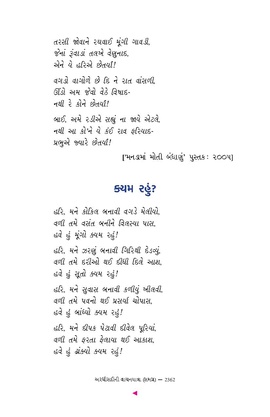 તરસી જોવાને રઘવાઈ મૂંગી ગાવડી,
જેનાં રૂંવાડાં તલખે વેણુનાદ,
એને યે હરિએ છેતર્યાં!
વગડો વાગોળે છે દિ ને રાત વાંસળી,
ઊંડો અમ જેવો વેઠે વિષાદ-
નથી રે કોને છેતર્યાં!
ભાઈ, અમે રડીએ રાશ્યું ના જાયે એટલે,
નથી આ કો'ને યે કંઈ રાવ ફરિયાદ-
પ્રભુએ જ્યારે છેતર્યાં!
['મનડામાં મોતી બંધાણું' પુસ્તક: ૨૦૦૫]
ક્યમ રહું?
હરિ, મને કોકિલ બનાવી વગડે મેલીયો,
વળી તમે વસંત બનીને વિલસ્યા પાસ,
હવે હું મૂંગો ક્યમ રહું!
હરિ, મને ઝરણું બનાવી ગિરિથી દેડવ્યું,
વળી તમે દરીઓ થઈ દીધી દિલે આશ,
હવે હું સૂતો ક્યમ રહું!
હરિ, મને સુવાસ બનાવી કળીયું ખીલવી,
વળી તમે પવનો થઈ પ્રસર્યા ચોપાસ,
હવે હું બાંધ્યો ક્યમ રહું!
હરિ, મને દીપક પેટાવી દીવેલ પૂરિયાં,
વળી તમે ફરતા ફેલાયા થઈ આકાશ,
હવે હું ઢાંક્યો ક્યમ રહું!
અરધીસદીની વાચનયાત્રા (૯ભાગ) — 2362